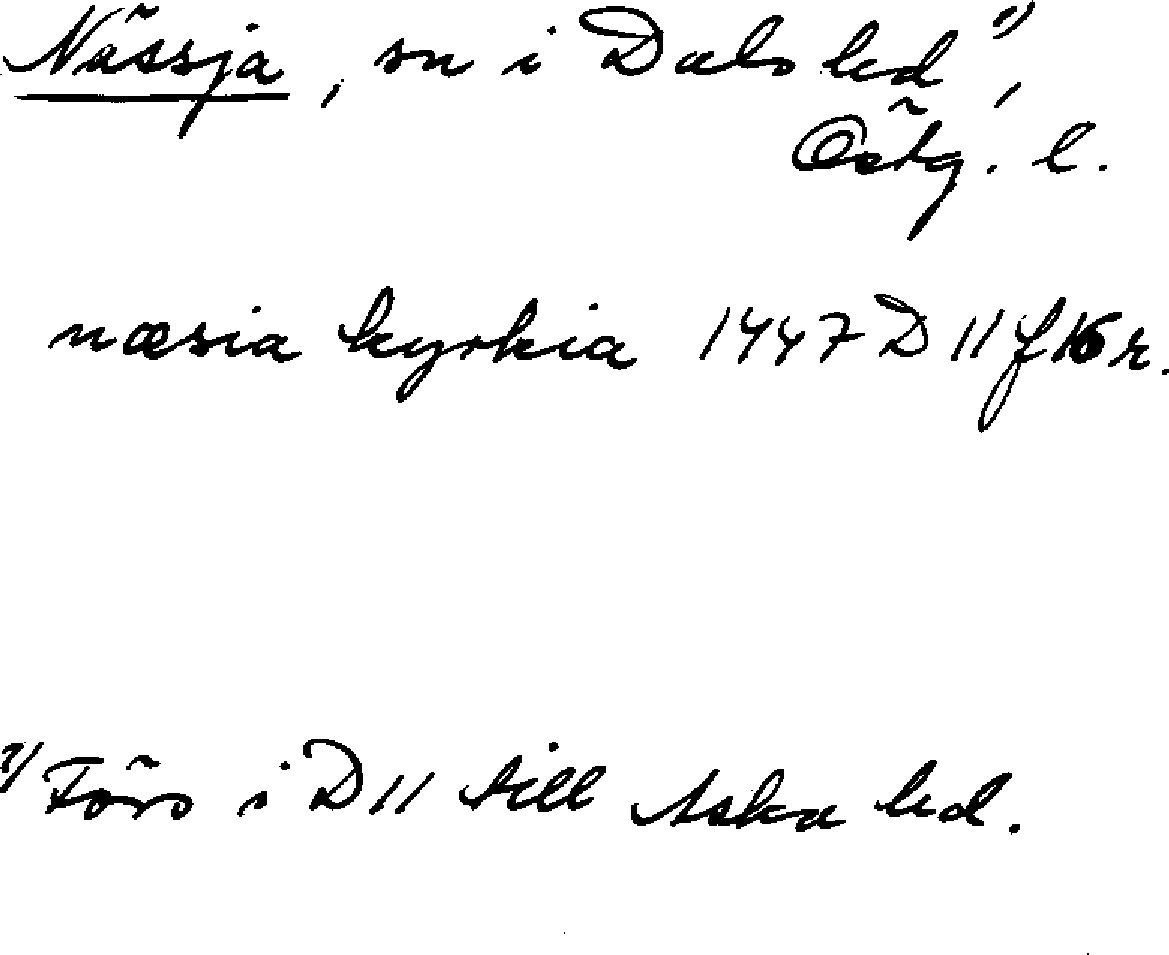 Nässja, sn i Dals hd ¹⁾,
Östg. l.
næsia kyrkia 1447 D 11 f 16 r.
¹⁾ Förs i D 11 till Aska hd.